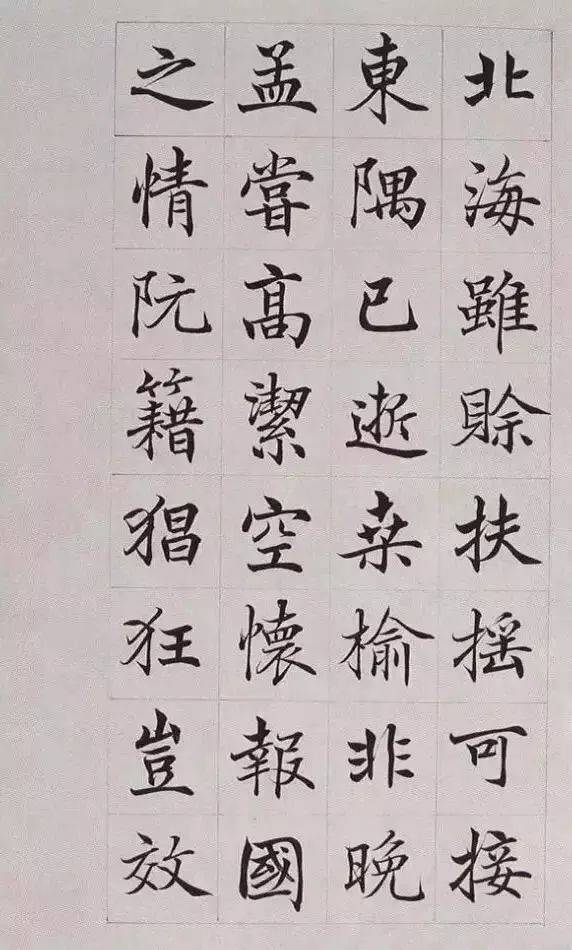 北海雖賒扶摇可接
東隅已逝桒榆非晚
孟嘗髙潔空懷報國
之情阮籍猖狂豈效